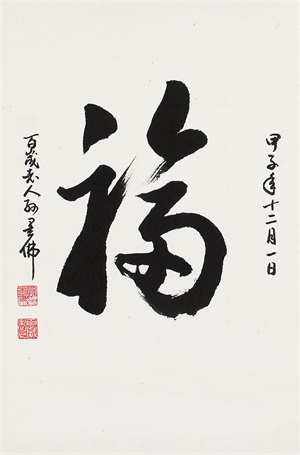 甲子年十二月一日
福
百歲老人孙墨佛